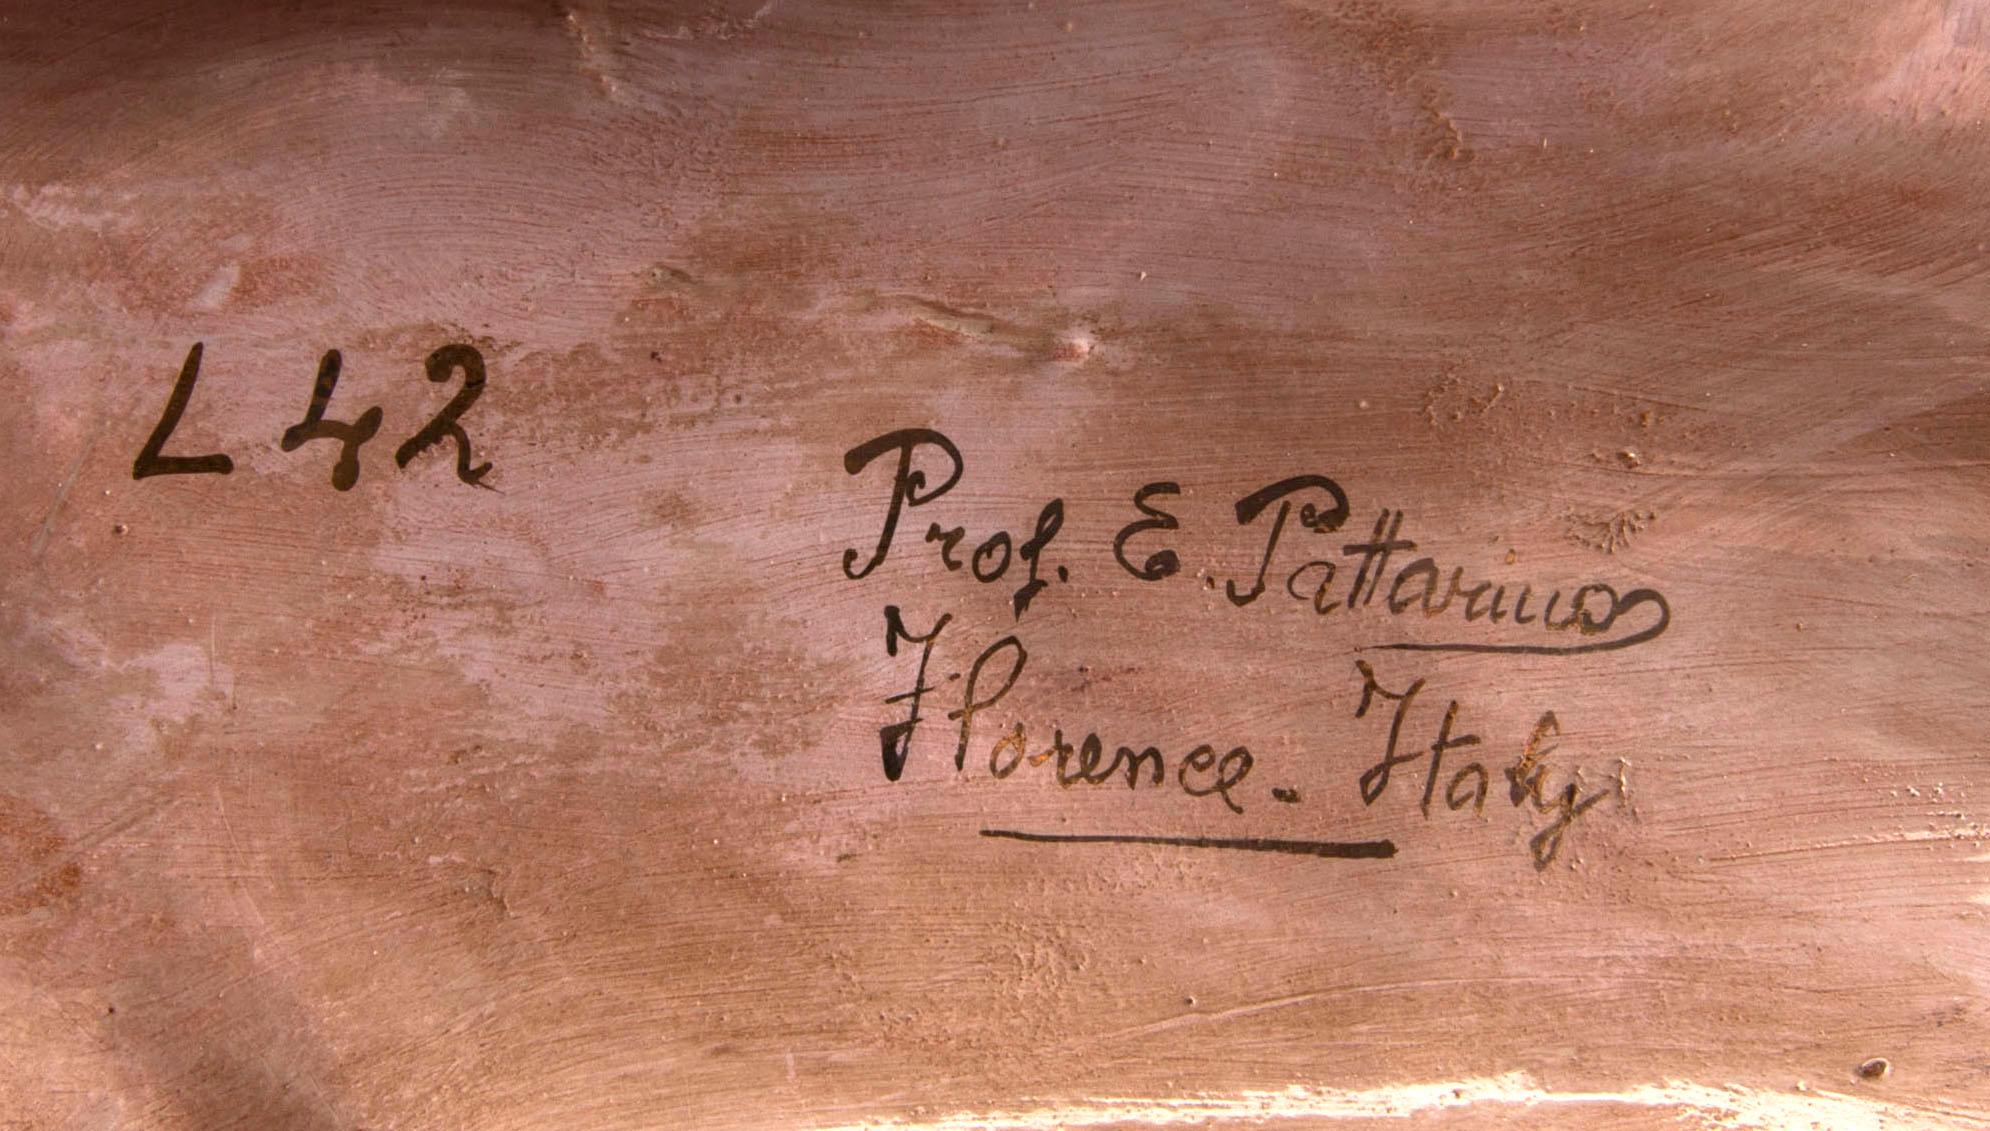 L 42
Prof. E. Pattarino
Florence. Italy